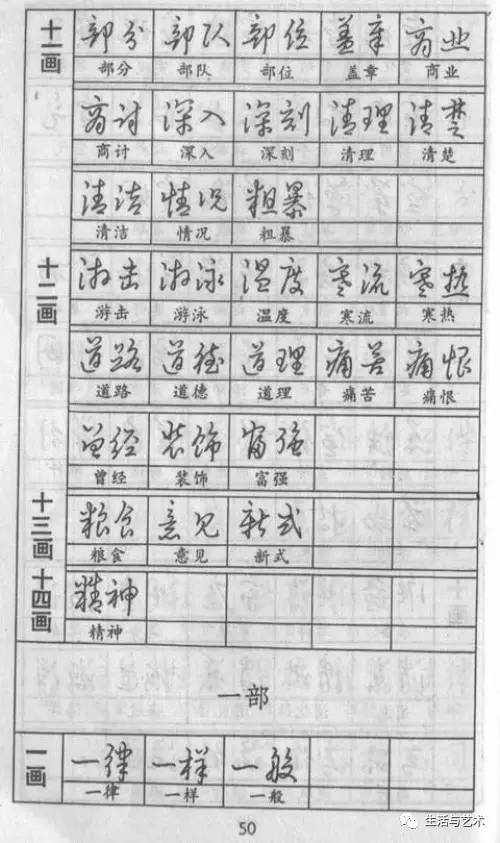 十一画
部分 部队 部位 盖章 商业
部分 部队 部位 盖章 商业
商讨 深入 深刻 清理 清楚
商讨 深入 深刻 清理 清楚
清洁 情况 粗暴
清洁 情况 粗暴
十二画
游击 游泳 温度 寒流 寒热
游击 游泳 温度 寒流 寒热
道路 道德 道理 痛苦 痛恨
道路 道德 道理 痛苦 痛恨
曾经 装饰 富强
曾经 装饰 富强
十三画
粮食 意见 新式
粮食 意见 新式
十四画
精神
精神
一部
一画
一律 一样 一般
一律 一样 一般
50
生活与艺术